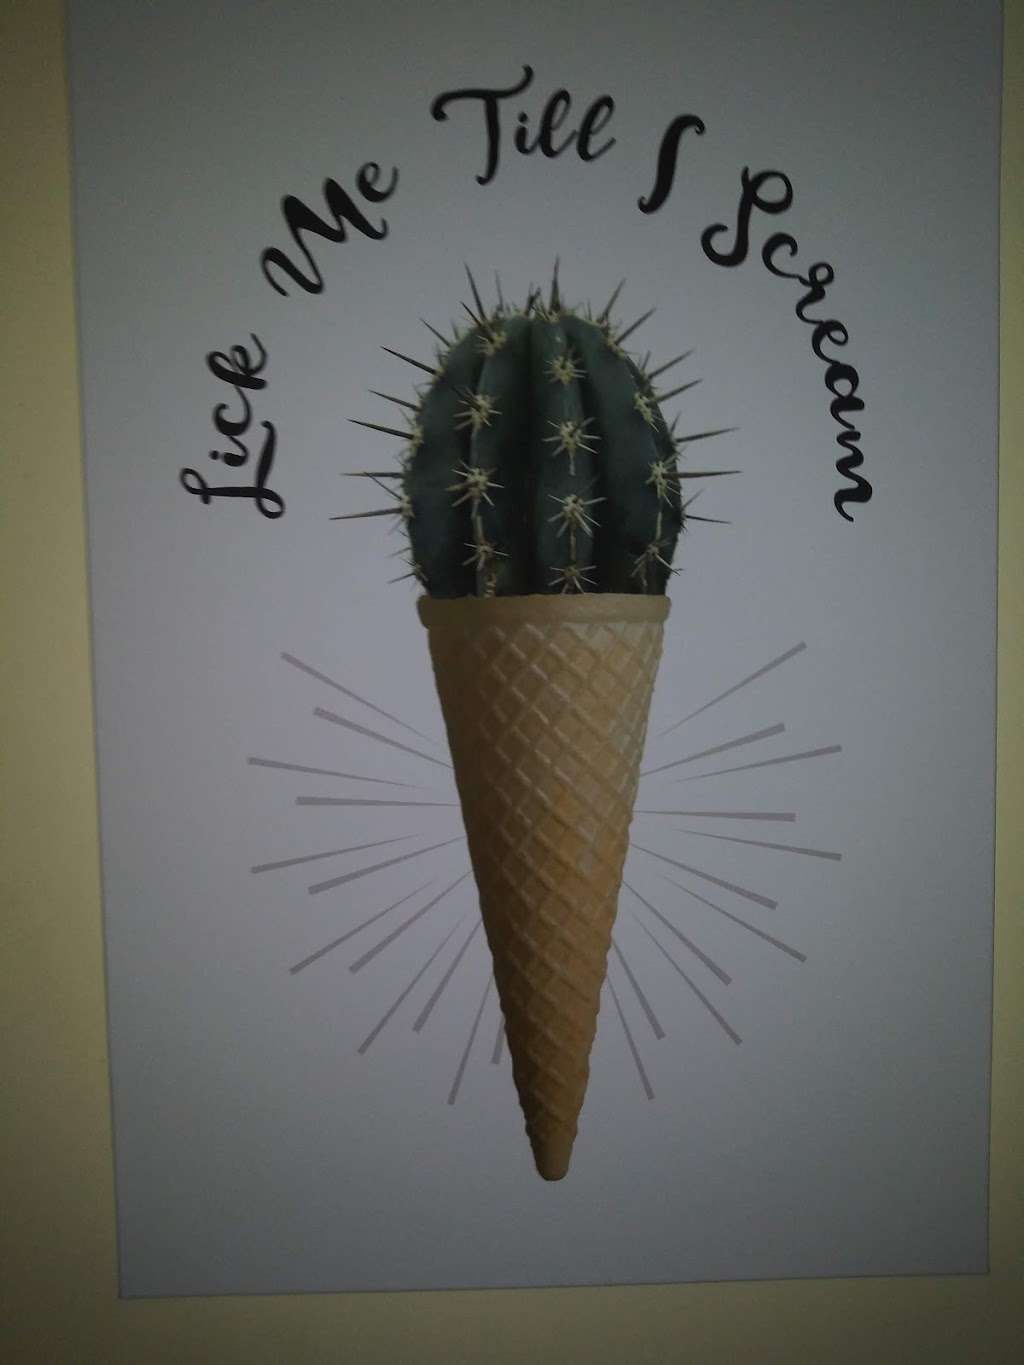 Lick Me Till I Scream